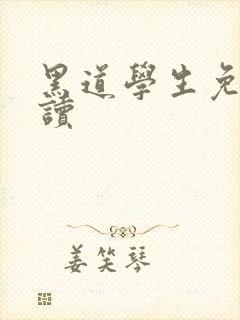 黑道學生免
讀
姜笑琴